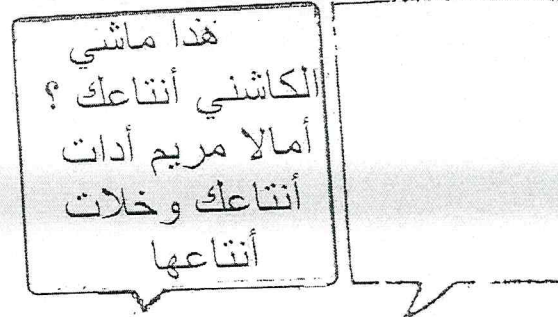 هذا ماشي
الكاشني أنتاعك ؟
أمالا مريم أدات
أنتاعك وخلات
أنتاعها